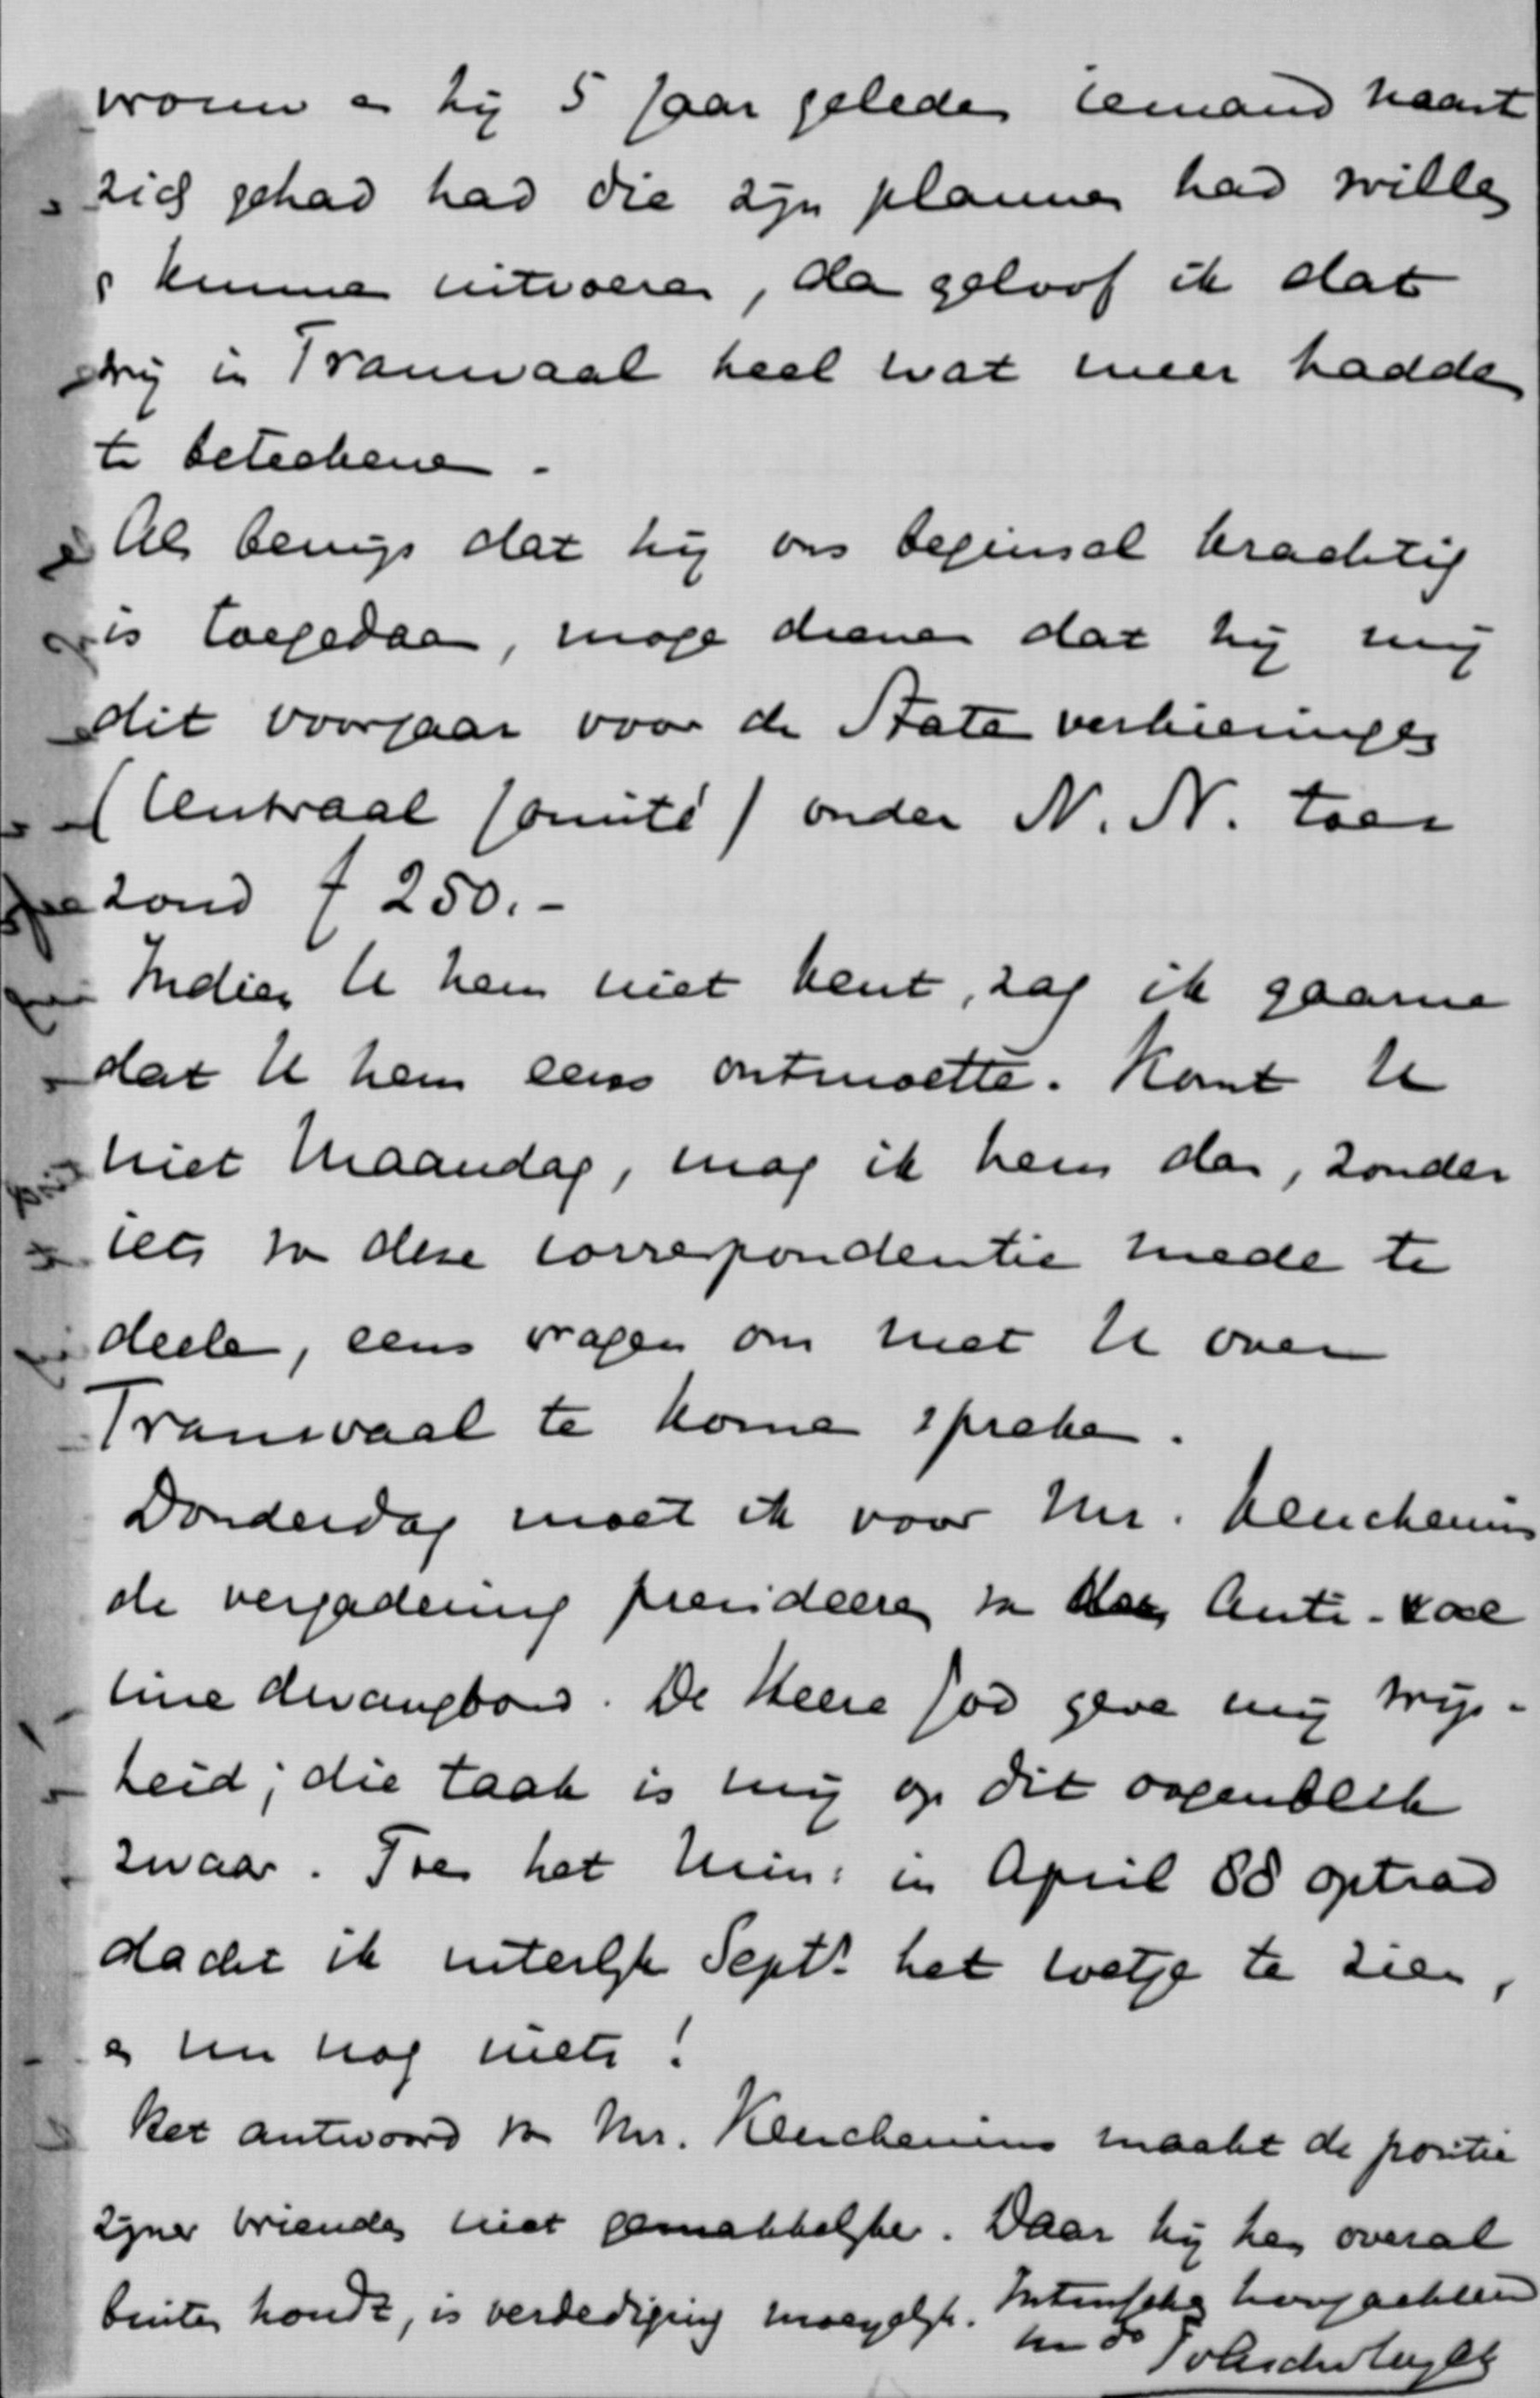 wonen en hij 5 jaar geleden iemand naast
zich gehad had die zijn plannen had willen
kunnen uitvoeren, dan geloof ik dat
wij in Transvaal heel wat meer hadden
te beteekenen.
Als bewijs dat hij ons beginsel krachtig
is toegedaan, moge dienen dat hij mij
dit voorjaar voor de Staten verkiezingen
(Centraal Comité) onder N. N. toe
zond f 250.-
Indien U hem niet kent, zag ik gaarne
dat U hem eens ontmoette. Komt U
niet Maandag, mag ik hem dan, zonder
iets van deze correspondentie mede te
deelen, eens vragen om met U over
Transvaal te komen spreken.
Donderdag moet ik voor Mr. Keuchenius
de vergadering presideeren van den Anti-vac
cine dwangbond. De Heere God geve mij wijs-
heid; die taak is mij op dit oogenblik
zwaar. Toen het Min: in April 88 optrad
dacht ik uiterlijk Septr het wetje te zien,
en nu nog niets!
Het antwoord van Mr. Keuchenius maakt de positie
zijner vrienden niet gemakkelijker. Daar hij hen overal
buiten houdt, is verdediging moeijelijk. Intusschen hoogachtend